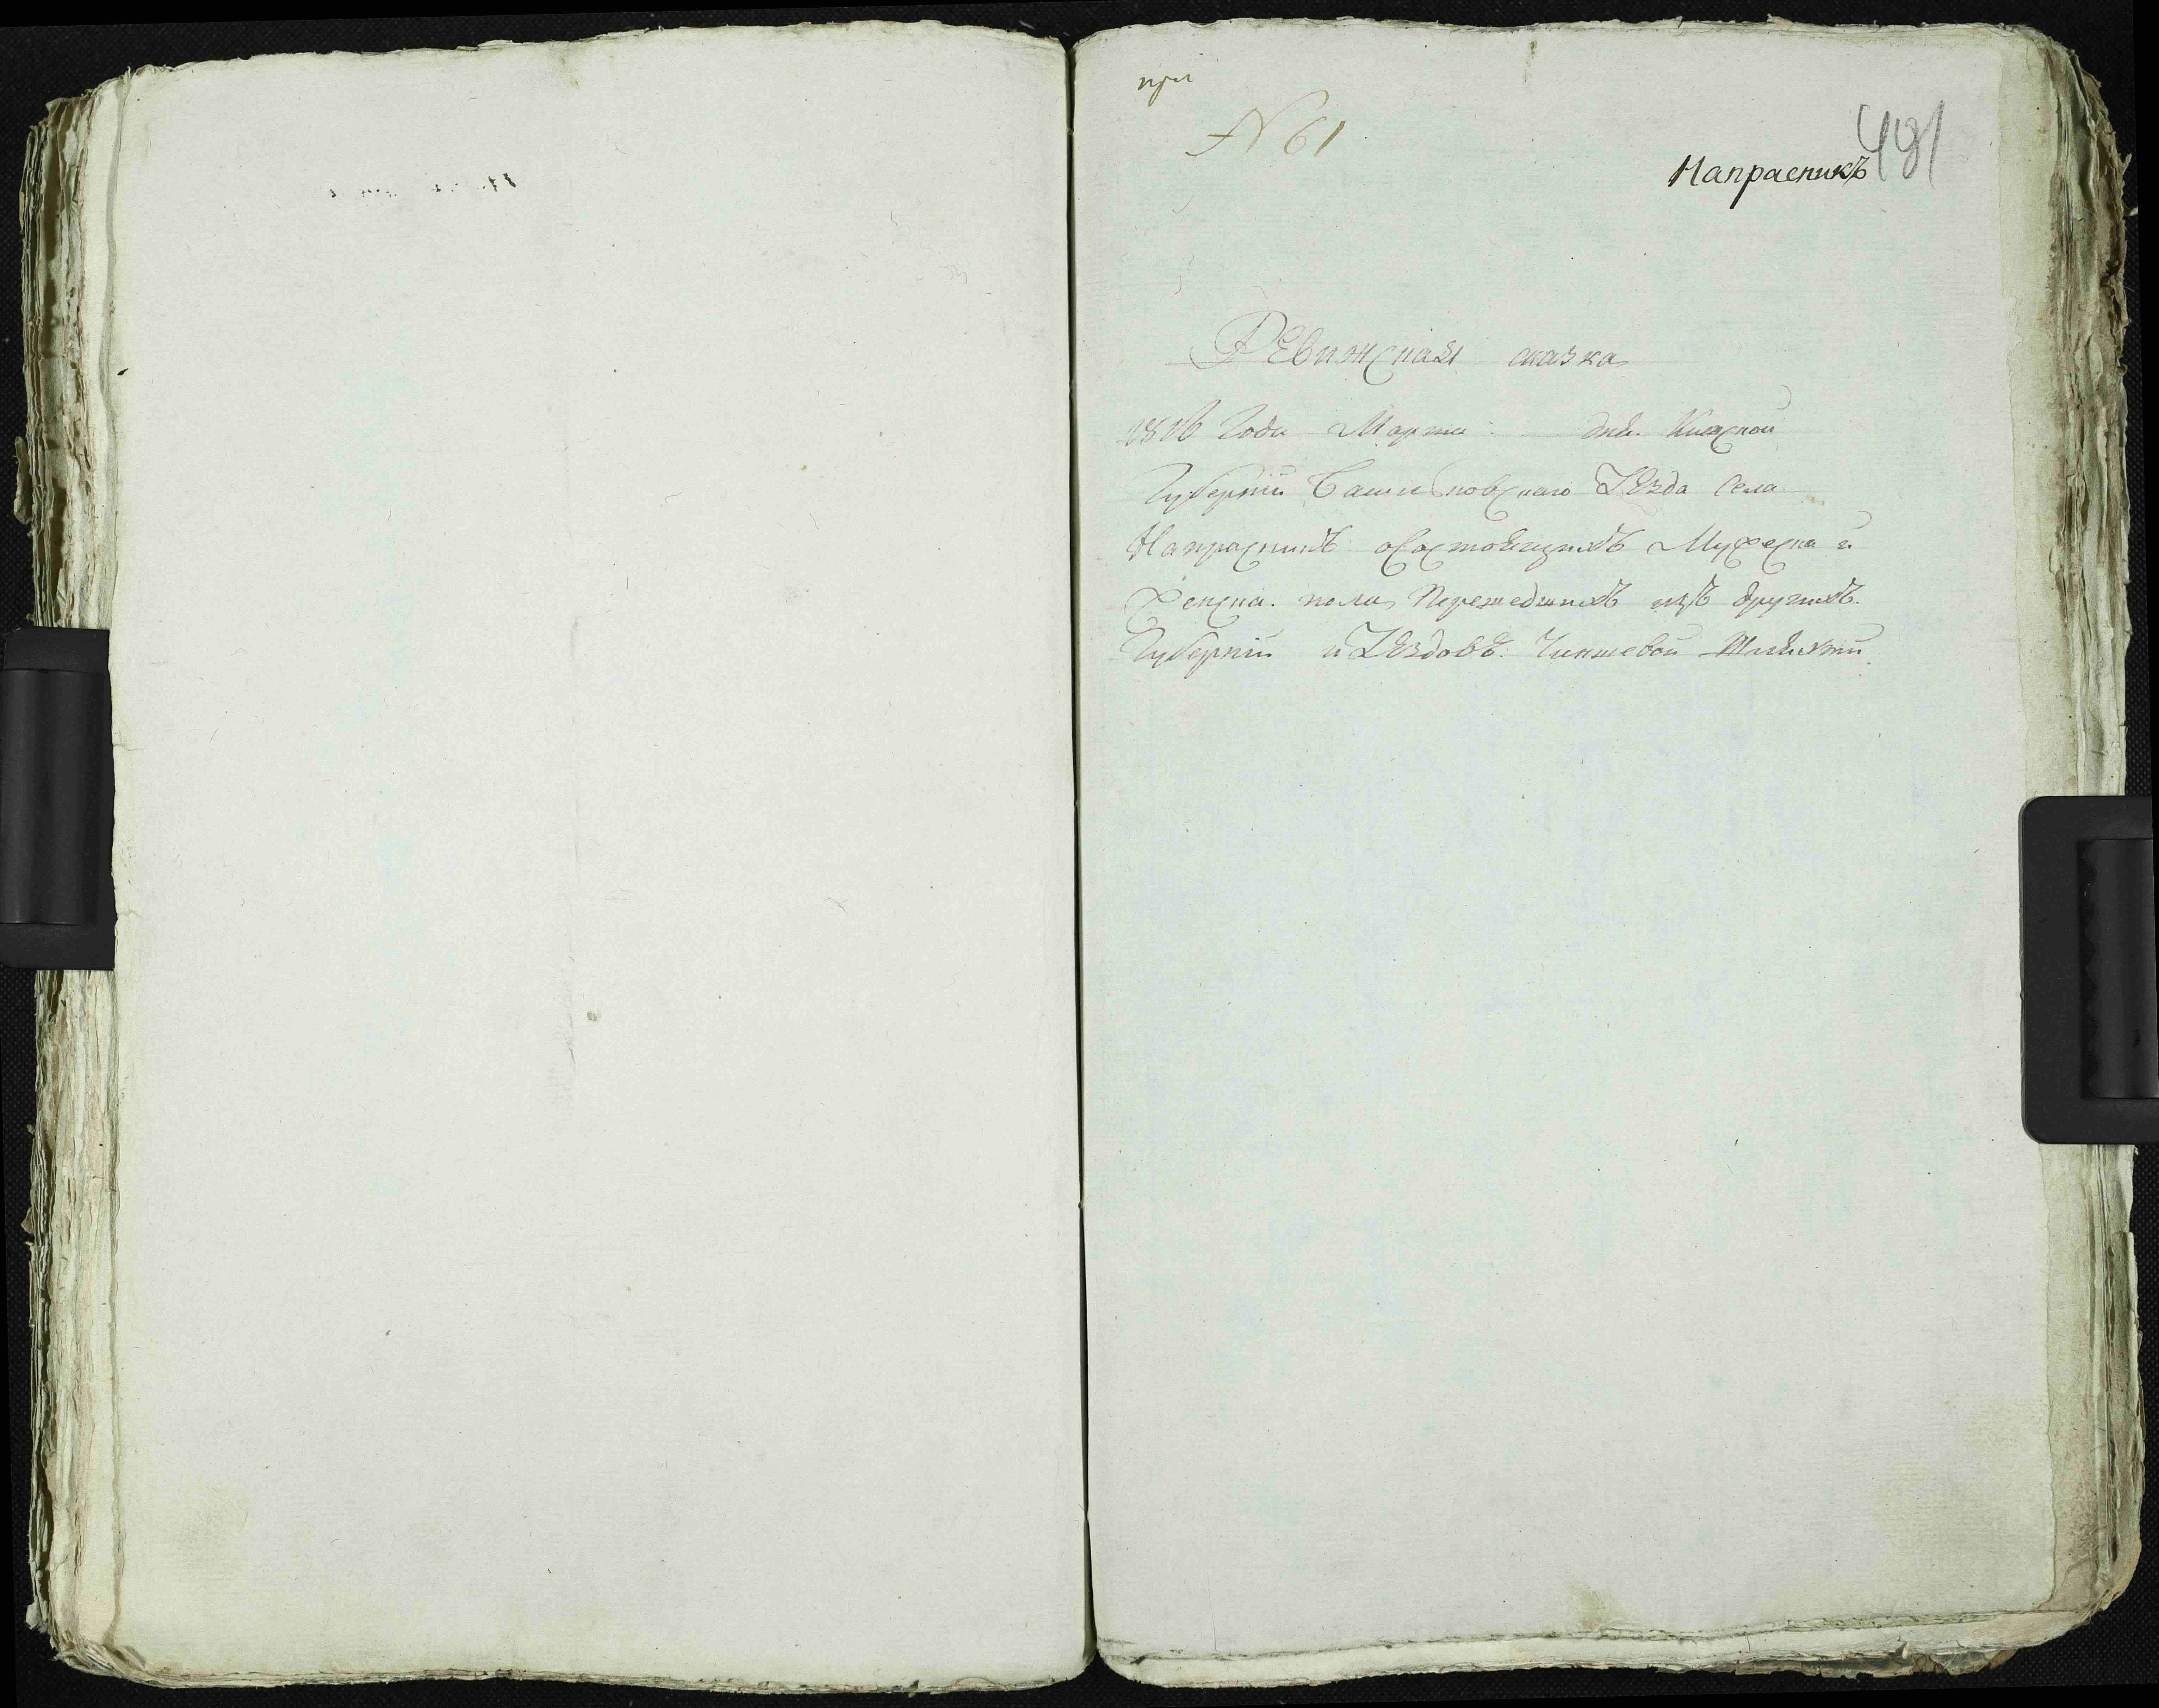 при
N 61
481
Напрасникъ
Ревижская сказка
1816 Года Марта дня. Киевской
Губерніи Василковскаго Уѣзда Села
Напрасникъ осостоящихъ Мужеска и
Женска. пола, Перешедшихъ изъ другихъ.
Губерніи и Уѣздовъ. Чиншевой Шляхти